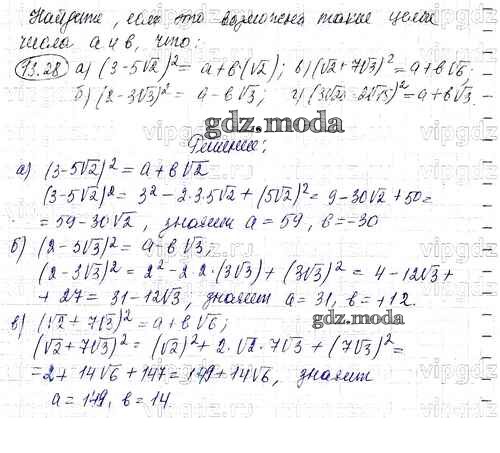 Найдите, если это возможно такие целые
числа а и в, что:
13.28 а) (3-5√2)² = а+в(√2); в) (√2+7√3)² = а+в√6;
б) (2-3√3)² = а-в√3; г) = а+в√3.
gdz.moda
Решение:
а) (3-5√2)² = а+в√2
(3-5√2)² = 3² - 2·3·5√2 + (5√2)² = 9-30√2 + 50 =
= 59-30√2, значит а = 59, в = -30
б) (2-3√3)² = а-в√3;
(2-3√3)² = 2² - 2·2·(3√3) + (3√3)² = 4-12√3 +
+ 27 = 31-12√3, значит а = 31, в = +12.
в) (√2+7√3)² = а+в√6;
gdz.moda
(√2+7√3)² = (√2)² + 2·√2·7√3 + (7√3)² =
= 2+14√6+147 = 149+14√6, значит
а = 149, в = 14.